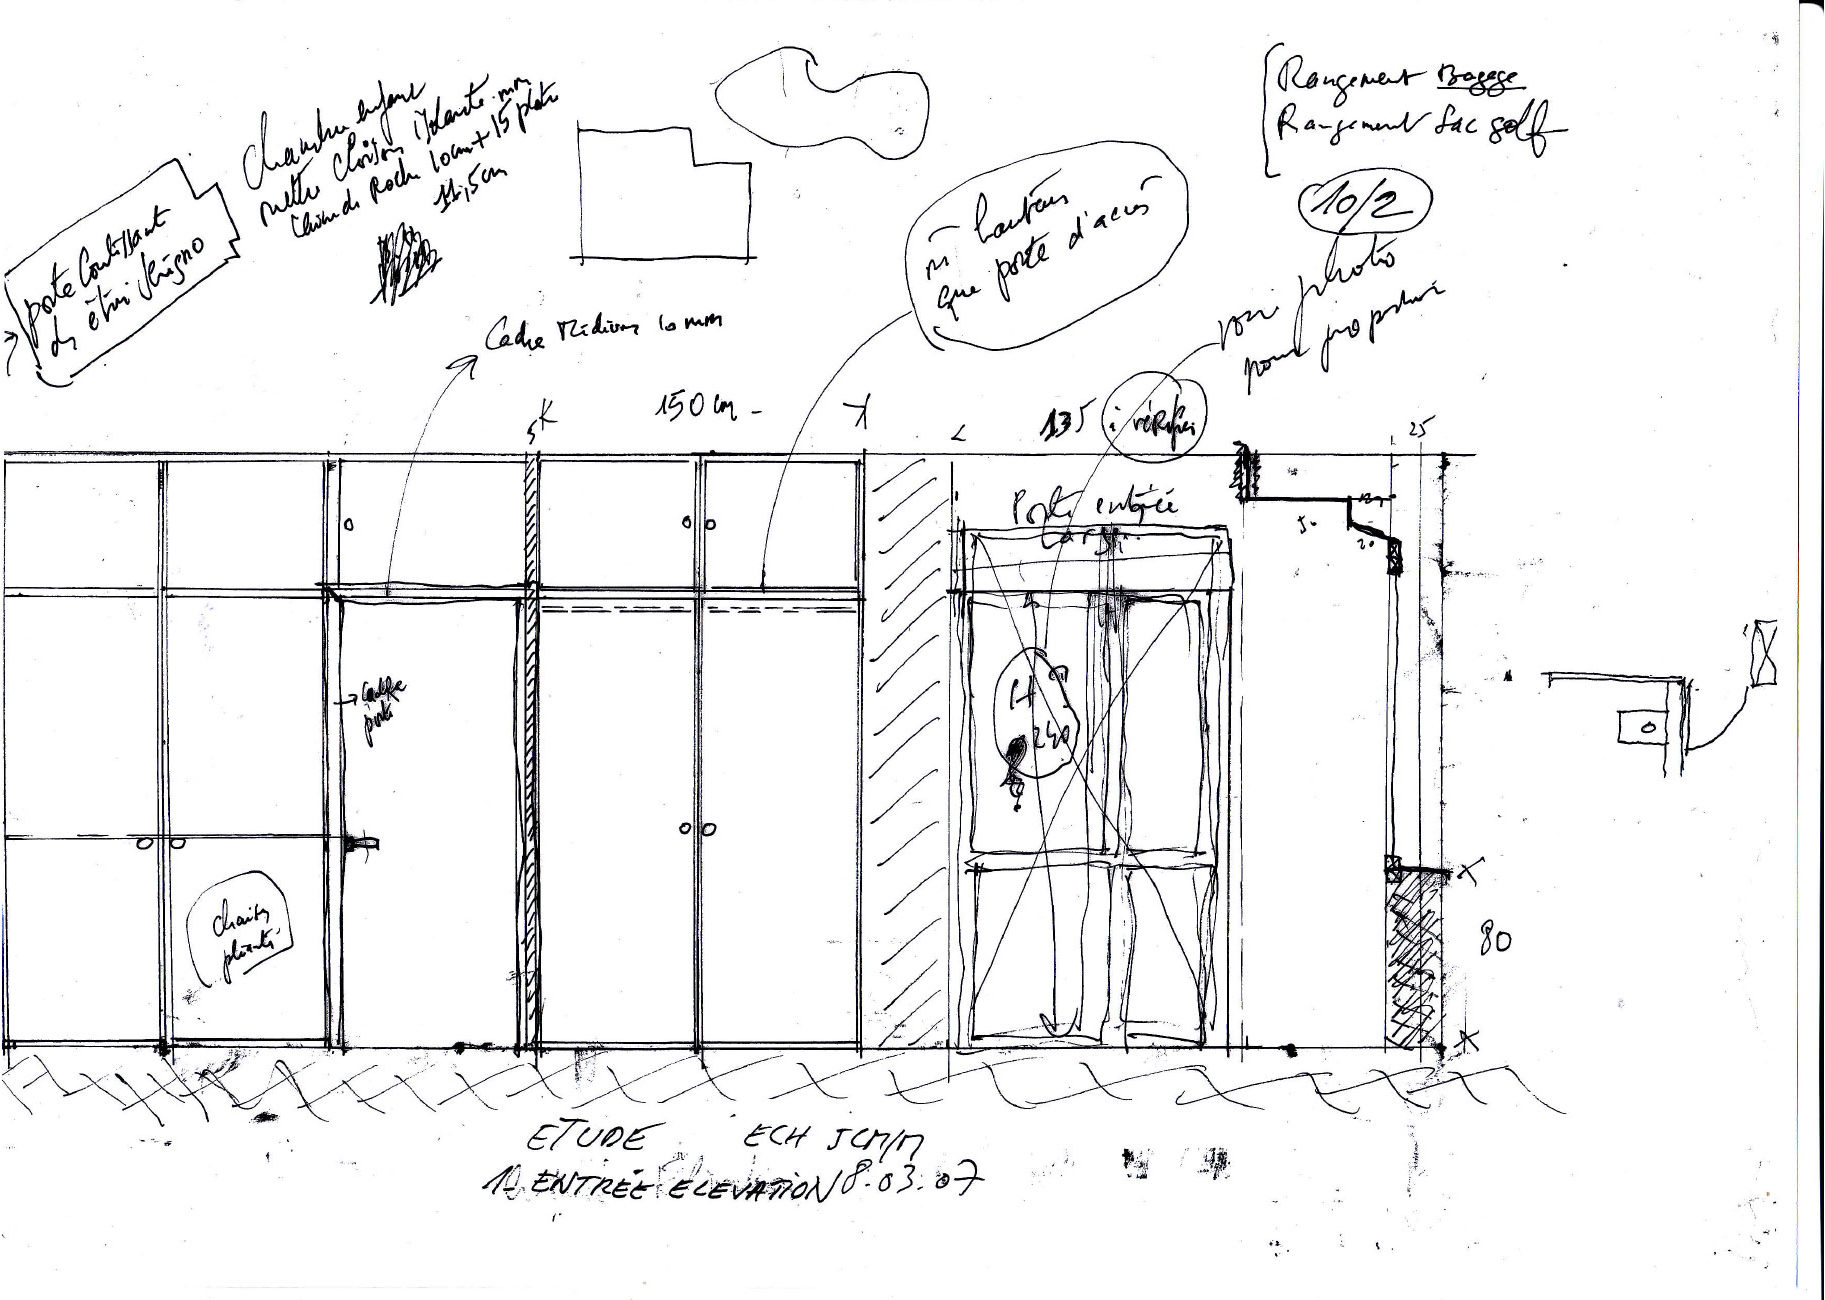 Rangement Bagage
Rangement Sac golf
10/2
voir photo
pour
m̄ hauteur
que porte d'accès
Chambre enfant
mettre cloison isolante
Roche 10cm + 15
11,5cm
porte Coulissant
Cadre Médium 10 mm
5
150 cm
135
à vérifier
25
Porte entrée
50
20
Cadre
porte
H
240
chaises
pliantes
80
ETUDE ECH 5CM/M
1- ENTRÉE ELEVATION 8.03.07